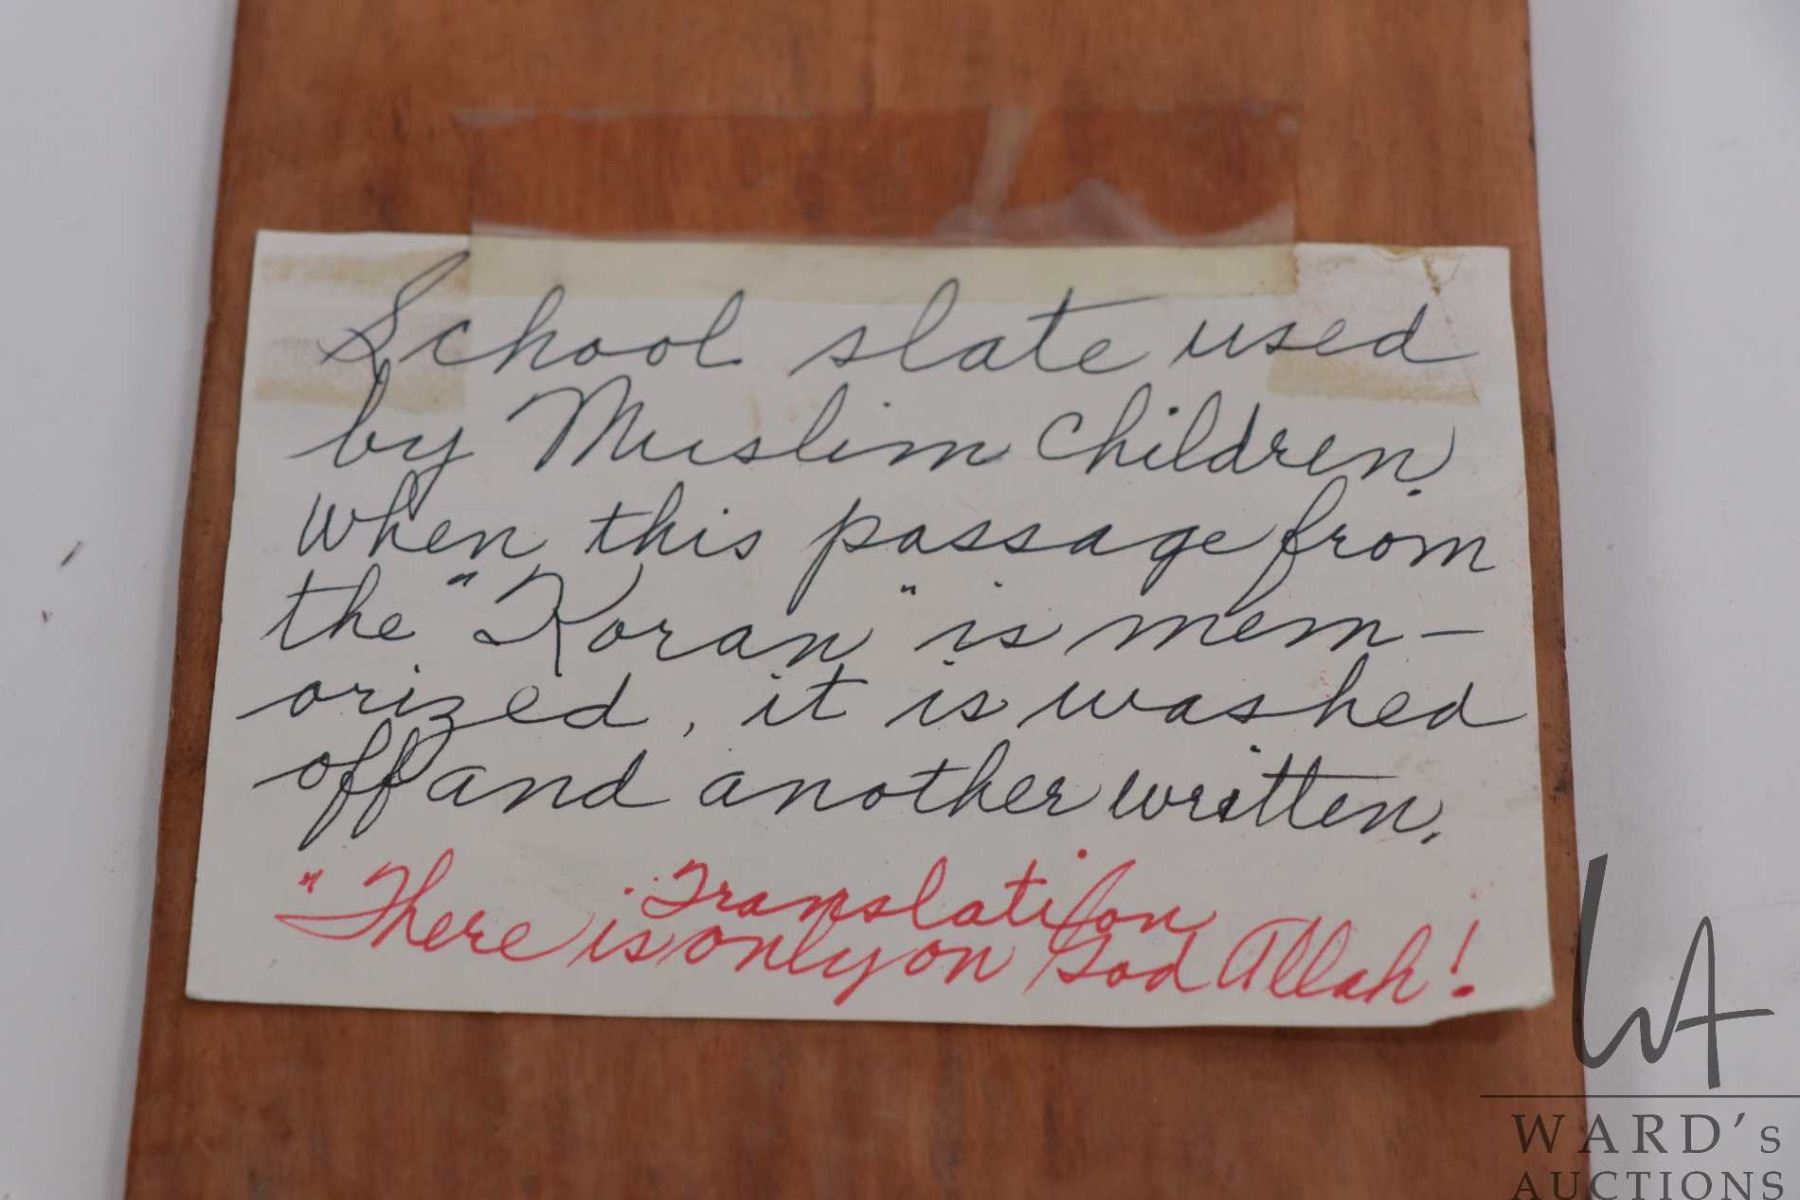 School slate used
by Muslim Children.
When this passage from
the "Koran" is mem-
orized, it is washed
off and another written.
Translation
"There is only on God Allah!
WARD's
AUCTIONS